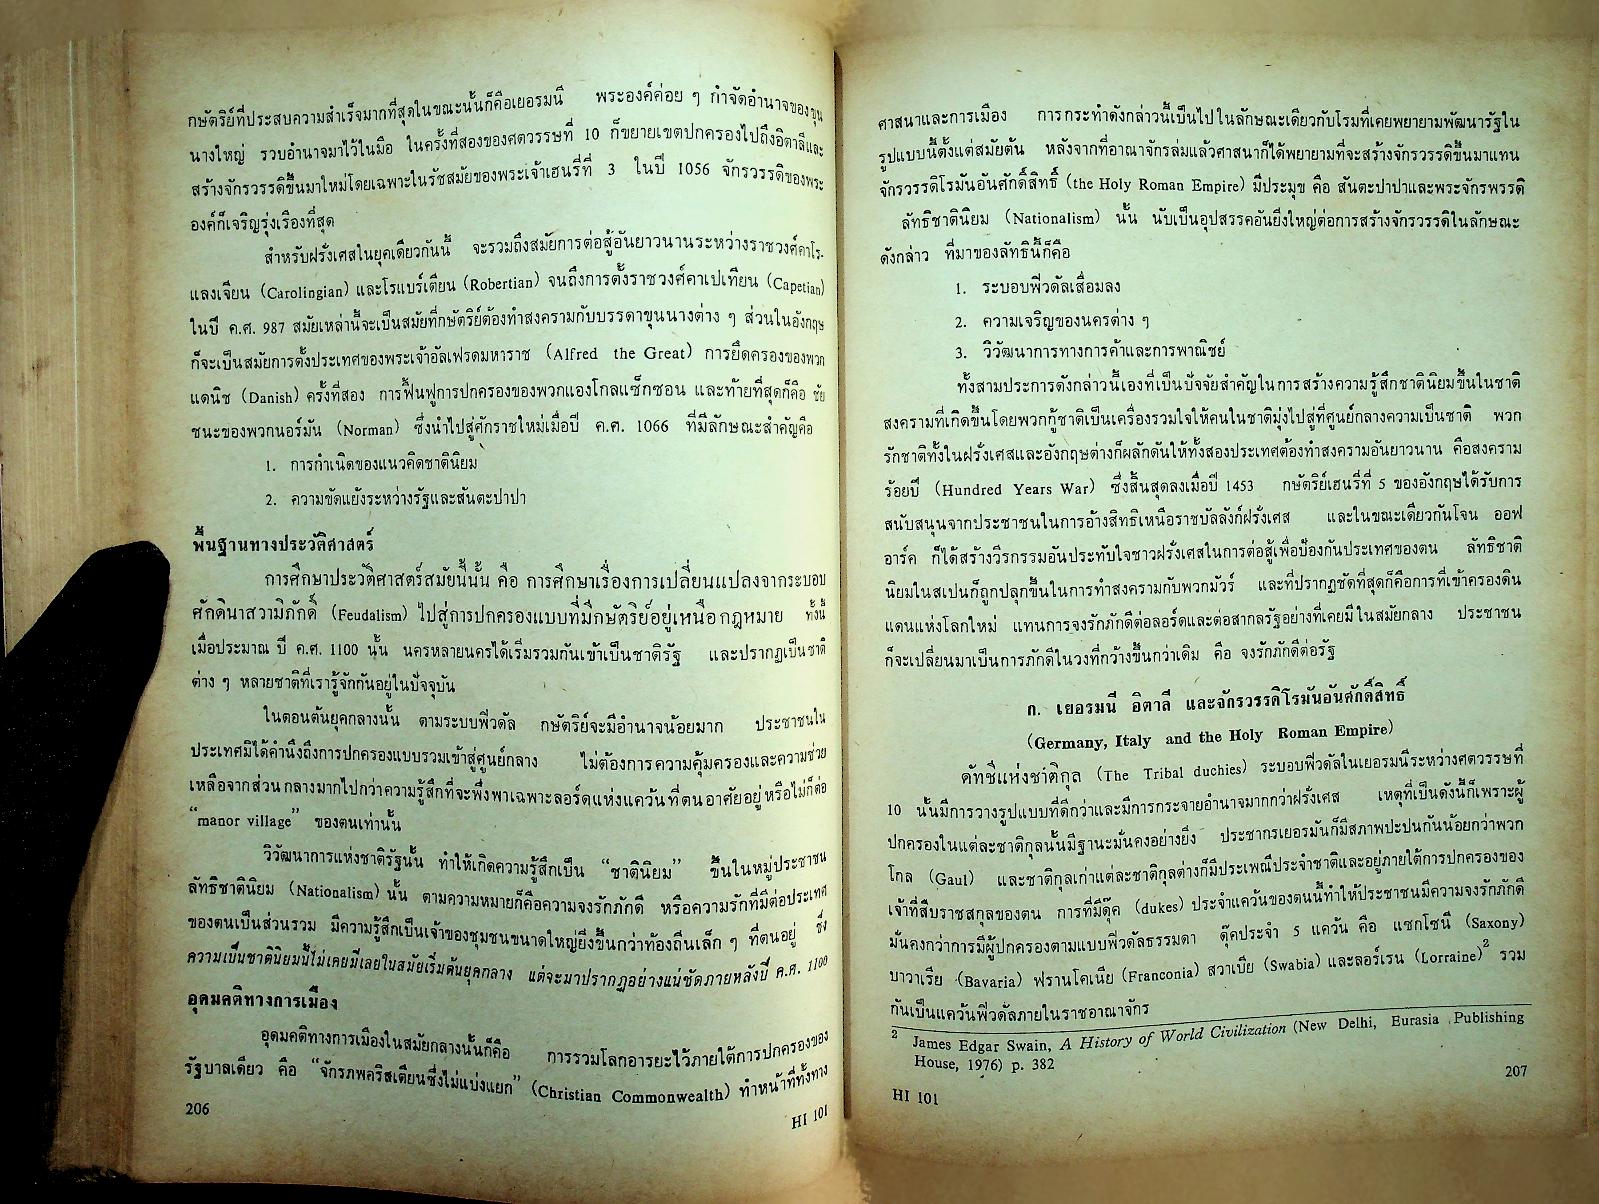 กษัตริย์ที่ประสบความสำเร็จมากที่สุดในขณะนั้นก็คือเยอรมนี พระองค์ค่อย ๆ กำจัดอำนาจของขุน
นางใหญ่ รวบอำนาจมาไว้ในมือ ในครั้งที่สองของศตวรรษที่ 10 ก็ขยายเขตปกครองไปถึงอิตาลีและ
สร้างจักรวรรดิขึ้นมาใหม่โดยเฉพาะในรัชสมัยของพระเจ้าเฮนรี่ที่ 3 ในปี 1056 จักรวรรดิของพระ
องค์ก็เจริญรุ่งเรืองที่สุด
สำหรับฝรั่งเศสในยุคเดียวกันนี้ จะรวมถึงสมัยการต่อสู้อันยาวนานระหว่างราชวงศ์คาโร-
แลงเจียน (Carolingian) และโรแบร์เตียน (Robertian) จนถึงการตั้งราชวงศ์คาเปเทียน (Capetian)
ในปี ค.ศ. 987 สมัยเหล่านี้จะเป็นสมัยที่กษัตริย์ต้องทำสงครามกับบรรดาขุนนางต่าง ๆ ส่วนในอังกฤษ
ก็จะเป็นสมัยการตั้งประเทศของพระเจ้าอัลเฟรดมหาราช (Alfred the Great) การยึดครองของพวก
แดนิช (Danish) ครั้งที่สอง การฟื้นฟูการปกครองของพวกแองโกลแซ็กซอน และท้ายที่สุดก็คือ ชัย
ชนะของพวกนอร์มัน (Norman) ซึ่งนำไปสู่ศักราชใหม่เมื่อปี ค.ศ. 1066 ที่มีลักษณะสำคัญคือ
1. การกำเนิดของแนวคิดชาตินิยม
2. ความขัดแย้งระหว่างรัฐและสันตะปาปา
พื้นฐานทางประวัติศาสตร์
การศึกษาประวัติศาสตร์สมัยนี้นั้น คือ การศึกษาเรื่องการเปลี่ยนแปลงจากระบอบ
ศักดินาสวามิภักดิ์ (Feudalism) ไปสู่การปกครองแบบที่มีกษัตริย์อยู่เหนือกฎหมาย ทั้งนี้
เมื่อประมาณ ปี ค.ศ. 1100 นั้น นครหลายนครได้เริ่มรวมกันเข้าเป็นชาติรัฐ และปรากฏเป็นชาติ
ต่าง ๆ หลายชาติที่เรารู้จักกันอยู่ในปัจจุบัน
ในตอนต้นยุคกลางนั้น ตามระบบฟิวดัล กษัตริย์จะมีอำนาจน้อยมาก ประชาชนใน
ประเทศมิได้คำนึงถึงการปกครองแบบรวมเข้าสู่ศูนย์กลาง ไม่ต้องการความคุ้มครองและความช่วย
เหลือจากส่วนกลางมากไปกว่าความรู้สึกที่จะพึ่งพาเฉพาะลอร์ดแห่งแคว้นที่ตนอาศัยอยู่หรือไม่ก็ต่อ
“manor village” ของตนเท่านั้น
วิวัฒนาการแห่งชาติรัฐนั้น ทำให้เกิดความรู้สึกเป็น “ชาตินิยม” ขึ้นในหมู่ประชาชน
ลัทธิชาตินิยม (Nationalism) นั้น ตามความหมายก็คือความจงรักภักดี หรือความรักที่มีต่อประเทศ
ของตนเป็นส่วนรวม มีความรู้สึกเป็นเจ้าของชุมชนขนาดใหญ่ยิ่งขึ้นกว่าท้องถิ่นเล็ก ๆ ที่ตนอยู่ ซึ่ง
ความเป็นชาตินิยมนี้ไม่เคยมีเลยในสมัยเริ่มต้นยุคกลาง แต่จะมาปรากฏอย่างแน่ชัดภายหลังปี ค.ศ. 1100
อุดมคติทางการเมือง
อุดมคติทางการเมืองในสมัยกลางนั้นก็คือ การรวมโลกอารยะไว้ภายใต้การปกครองของ
รัฐบาลเดียว คือ “จักรภพคริสเตียนซึ่งไม่แบ่งแยก” (Christian Commonwealth) ทำหน้าที่ทั้งทาง
206
HI 101
ศาสนาและการเมือง การกระทำดังกล่าวนี้เป็นไปในลักษณะเดียวกับโรมที่เคยพยายามพัฒนารัฐใน
รูปแบบนี้ตั้งแต่สมัยต้น หลังจากที่อาณาจักรล่มแล้วศาสนาก็ได้พยายามที่จะสร้างจักรวรรดิขึ้นมาแทน
จักรวรรดิโรมันอันศักดิ์สิทธิ์ (the Holy Roman Empire) มีประมุข คือ สันตะปาปาและพระจักรพรรดิ
ลัทธิชาตินิยม (Nationalism) นั้น นับเป็นอุปสรรคอันยิ่งใหญ่ต่อการสร้างจักรวรรดิในลักษณะ
ดังกล่าว ที่มาของลัทธินี้ก็คือ
1. ระบอบฟิวดัลเสื่อมลง
2. ความเจริญของนครต่าง ๆ
3. วิวัฒนาการทางการค้าและการพาณิชย์
ทั้งสามประการดังกล่าวนี้เองที่เป็นปัจจัยสำคัญในการสร้างความรู้สึกชาตินิยมขึ้นในชาติ
สงครามที่เกิดขึ้นโดยพวกกู้ชาติเป็นเครื่องรวมใจให้คนในชาติมุ่งไปสู่ที่ศูนย์กลางความเป็นชาติ พวก
รักชาติทั้งในฝรั่งเศสและอังกฤษต่างก็ผลักดันให้ทั้งสองประเทศต้องทำสงครามอันยาวนาน คือสงคราม
ร้อยปี (Hundred Years War) ซึ่งสิ้นสุดลงเมื่อปี 1453 กษัตริย์เฮนรี่ที่ 5 ของอังกฤษได้รับการ
สนับสนุนจากประชาชนในการอ้างสิทธิเหนือราชบัลลังก์ฝรั่งเศส และในขณะเดียวกันโจน ออฟ
อาร์ค ก็ได้สร้างวีรกรรมอันประทับใจชาวฝรั่งเศสในการต่อสู้เพื่อป้องกันประเทศของตน ลัทธิชาติ
นิยมในสเปนก็ถูกปลุกขึ้นในการทำสงครามกับพวกมัวร์ และที่ปรากฏชัดที่สุดก็คือการที่เข้าครองดิน
แดนแห่งโลกใหม่ แทนการจงรักภักดีต่อลอร์ดและต่อสากลรัฐอย่างที่เคยมีในสมัยกลาง ประชาชน
ก็จะเปลี่ยนมาเป็นการภักดีในวงที่กว้างขึ้นกว่าเดิม คือ จงรักภักดีต่อรัฐ
ก. เยอรมนี อิตาลี และจักรวรรดิโรมันอันศักดิ์สิทธิ์
(Germany, Italy and the Holy Roman Empire)
ดัทชีแห่งชาติกุล (The Tribal duchies) ระบอบฟิวดัลในเยอรมนีระหว่างศตวรรษที่
10 นั้นมีการวางรูปแบบที่ดีกว่าและมีการกระจายอำนาจมากกว่าฝรั่งเศส เหตุที่เป็นดังนี้ก็เพราะผู้
ปกครองในแต่ละชาติกุลนั้นมีฐานะมั่นคงอย่างยิ่ง ประชากรเยอรมันก็มีสภาพปะปนกันน้อยกว่าพวก
โกล (Gaul) และชาติกุลเก่าแต่ละชาติกุลต่างก็มีประเพณีประจำชาติและอยู่ภายใต้การปกครองของ
เจ้าที่สืบราชสกุลของตน การที่มีดุ๊ค (dukes) ประจำแคว้นของตนนี้ทำให้ประชาชนมีความจงรักภักดี
มั่นคงกว่าการมีผู้ปกครองตามแบบฟิวดัลธรรมดา ดุ๊คประจำ 5 แคว้น คือ แซกโซนี (Saxony)
บาวาเรีย (Bavaria) ฟรานโคเนีย (Franconia) สวาเบีย (Swabia) และลอร์เรน (Lorraine)2 รวม
กันเป็นแคว้นฟิวดัลภายในราชอาณาจักร
2 James Edgar Swain, A History of World Civilization (New Delhi, Eurasia Publishing
House, 1976) p. 382
207
HI 101